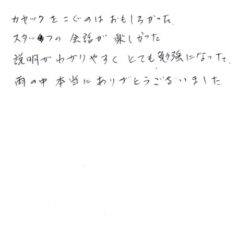 カヤックをこぐのはおもしろかった
スタッフの会話が楽しかった
説明がわかりやすくとても勉強になった。
雨の中本当にありがとうございました